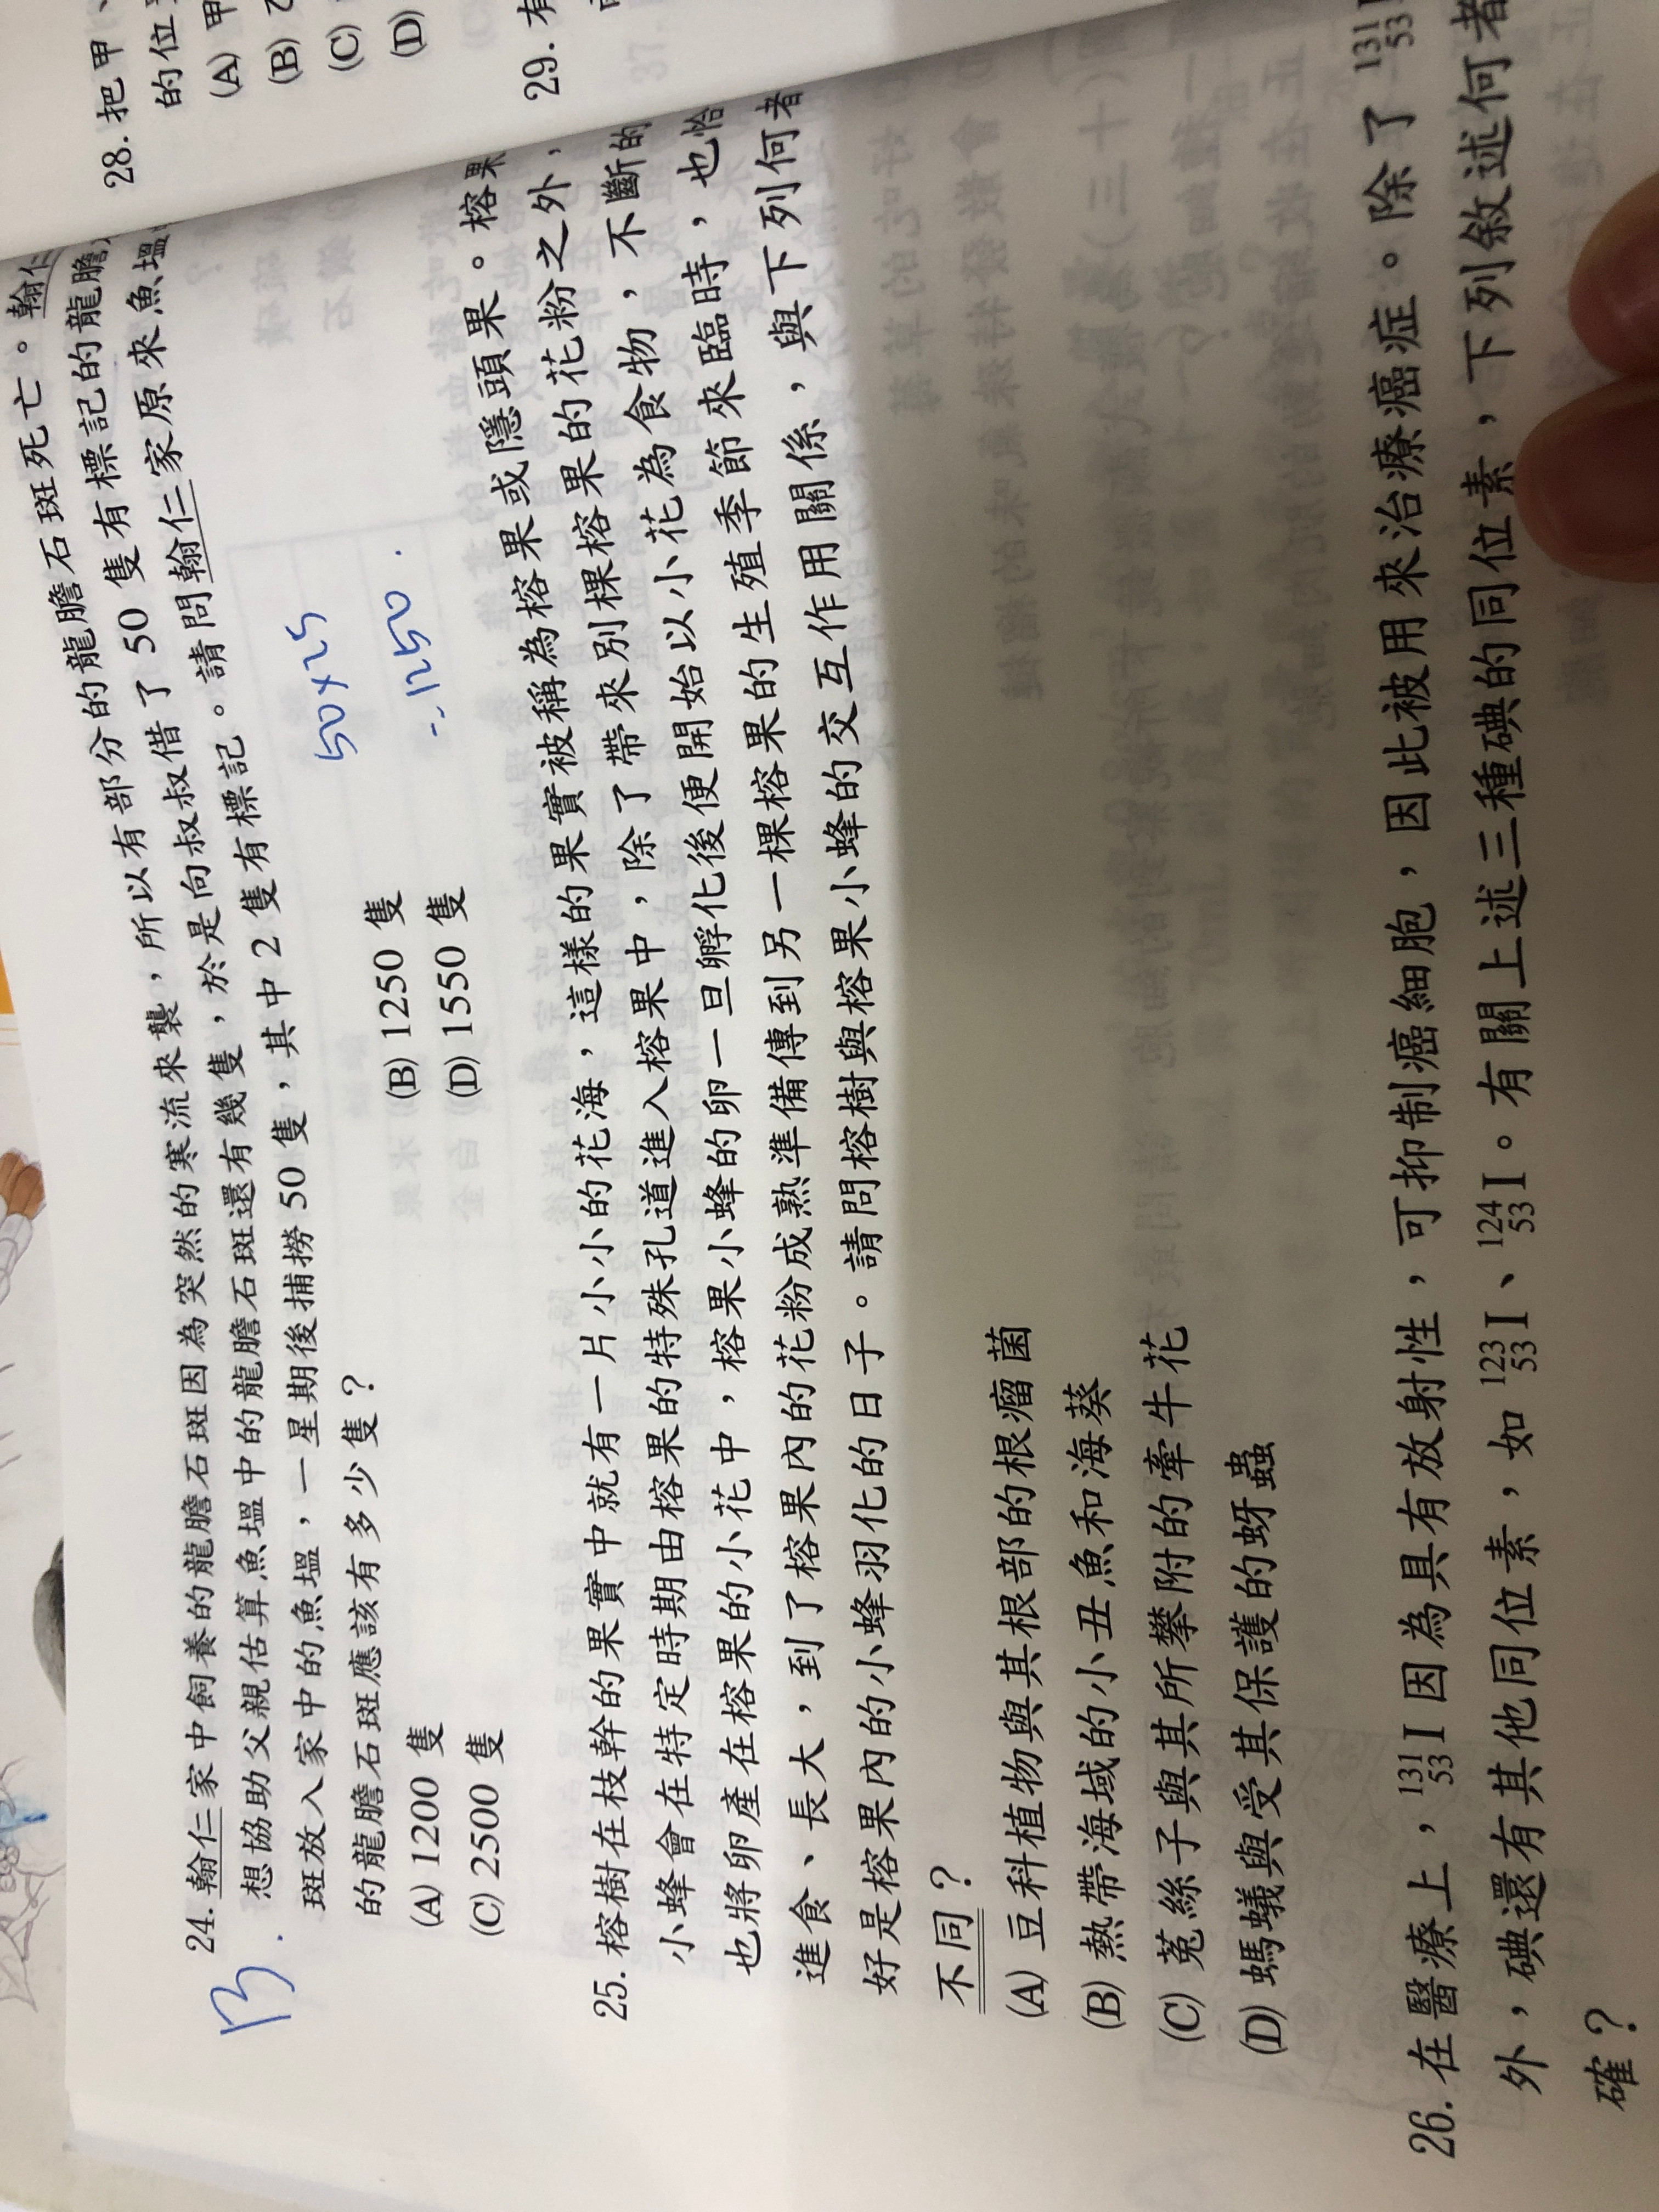 24. 翰仁家中飼養的龍膽石斑因為突然的寒流來襲，所以有部分的龍膽石斑死亡。翰仁
想協助父親估算魚塭中的龍膽石斑還有幾隻，於是向叔叔借了 50 隻有標記的龍膽
斑放入家中的魚塭，一星期後捕撈 50 隻，其中 2 隻有標記。請問翰仁家原來魚塭
的龍膽石斑應該有多少隻？
(A) 1200 隻 (B) 1250 隻
(C) 2500 隻 (D) 1550 隻
B.
50×25
1250.
25. 榕樹在枝幹的果實中就有一片小小的花海，這樣的果實被稱為榕果或隱頭果。榕果
小蜂會在特定時期由榕果的特殊孔道進入榕果中，除了帶來別棵榕果的花粉之外，
也將卵產在榕果的小花中，榕果小蜂的卵一旦孵化後便開始以小花為食物，不斷的
進食、長大，到了榕果內的花粉成熟準備傳到另一棵榕果的生殖季節來臨時，也恰
好是榕果內的小蜂羽化的日子。請問榕樹與榕果小蜂的交互作用關係，與下列何者
不同？
(A) 豆科植物與其根部的根瘤菌
(B) 熱帶海域的小丑魚和海葵
(C) 菟絲子與其所攀附的牽牛花
(D) 螞蟻與受其保護的蚜蟲
26. 在醫療上，¹³¹₅₃I 因為具有放射性，可抑制癌細胞，因此被用來治療癌症。除了 ¹³¹₅₃I
外，碘還有其他同位素，如 ¹²³₅₃I、¹²⁴₅₃I。有關上述三種碘的同位素，下列敘述何者
確？
28. 把甲、
的位
(A) 甲
(B) 乙
(C)
(D)
29. 有